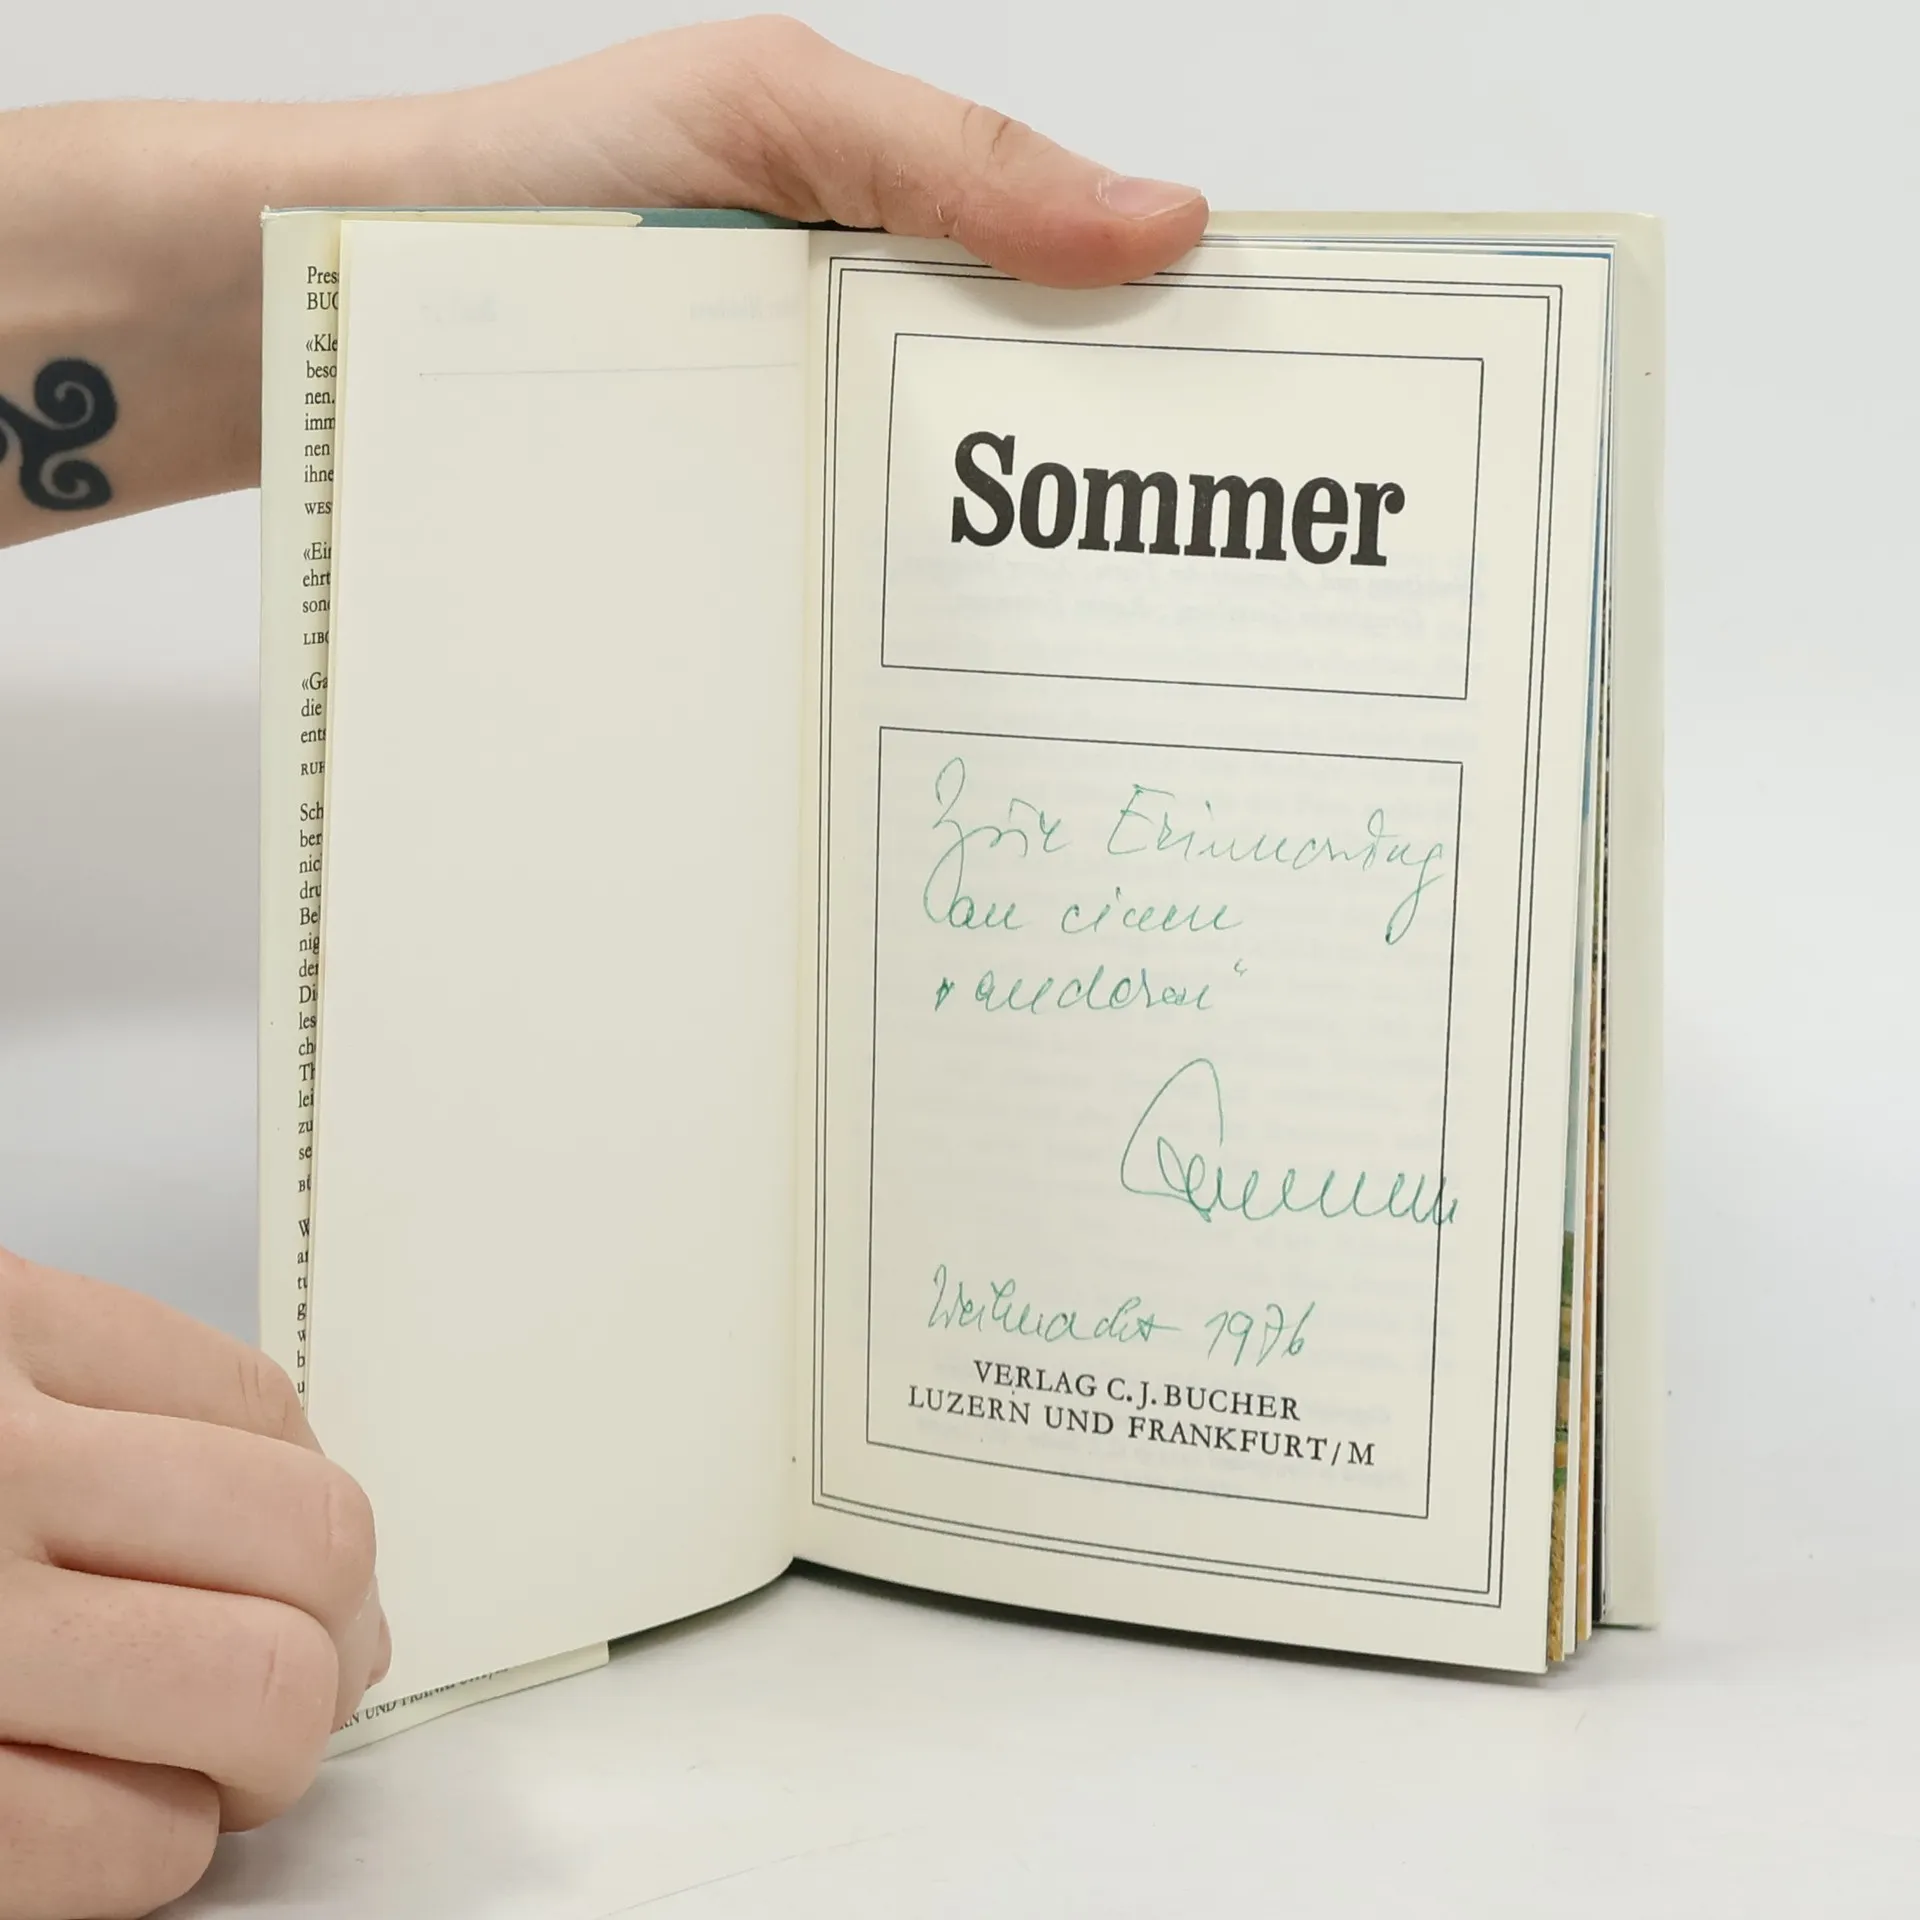 Pres
BUC
«Kle
beso
nen.
imm
nen
ihne
WES
«Ein
ehrt
sond
LIBO
«Ga
die
ents
RUH
Sch
ber
nic
dru
Be
nig
der
Di
les
ch
Th
lei
zu
se
BÜ
W
an
tu
g
w
b
u
RN UND FRANKFURT/M
Sommer
Zur Erinnerung
an einen
„anderen“
Weihnacht 1976
VERLAG C. J. BUCHER
LUZERN UND FRANKFURT/M